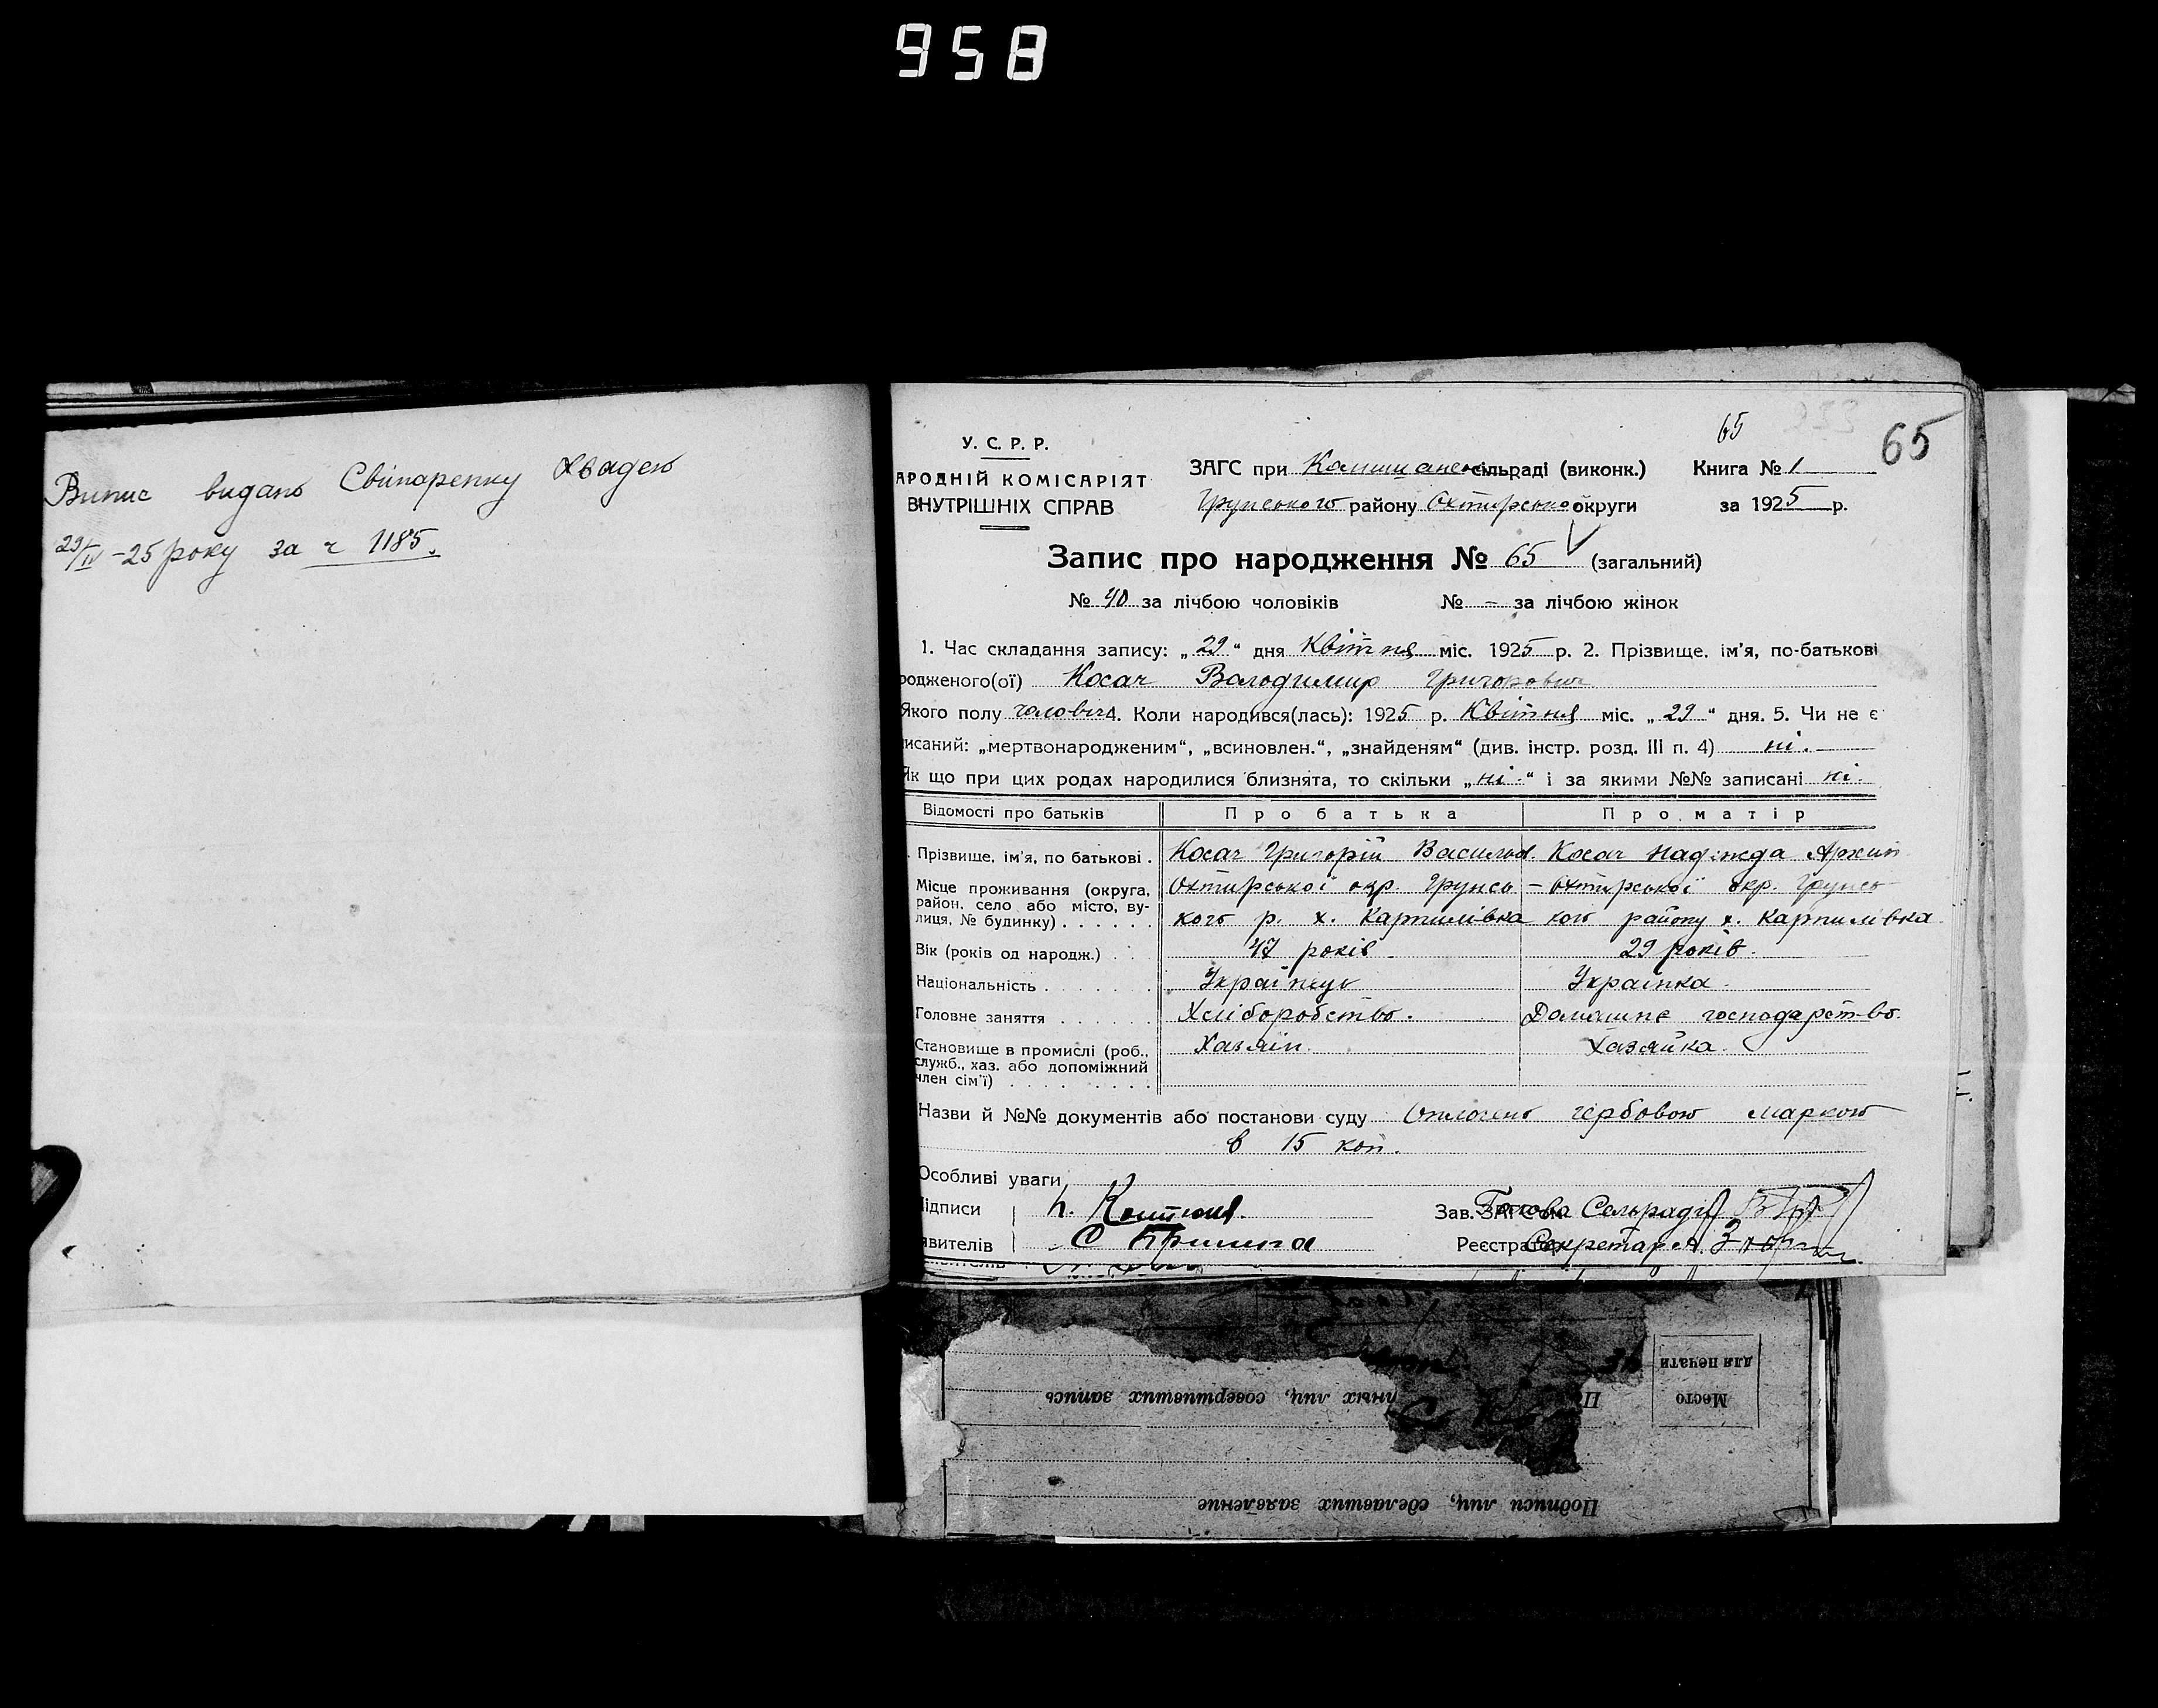 958
Випис видано Свінаренку Хвадею
29/IV -25 року за ч 1185.
65
65
У. С. Р. Р.
АРОДНІЙ КОМІСАРІЯТ
ВНУТРІШНІХ СПРАВ
ЗАГС при сільраді (виконк.) Книга № 1
Грунського району Охтирської округи за 1925 р.
Запис про народження № 65 (загальний)
№ 40 за лічбою чоловіків № – за лічбою жінок
1. Час складання запису: „29“ дня Квітня міс. 1925 р. 2. Прізвище, ім'я, по-батькові
родженого(ої) Косач Володимир Григорович
Якого полу чоловіч 4. Коли народився(лась): 1925 р. Квітня міс. „29“ дня. 5. Чи не є
писаний: „мертвонародженим“, „всиновлен.“, „знайденям“ (див. інстр. розд. III п. 4) ні.
Як що при цих родах народилися близнята, то скільки „ні.“ і за якими №№ записані ні.
Відомості про батьків Про батька Про матір
Прізвище, ім'я, по батькові . Косач Григорій Васильов. Косач Надежда Архип
Місце проживання (округа, район, село або місто, вулиця, № будинку) . . . . . . Охтирської окр. Грунсь – Охтирської окр. Грунсь
кого р. х. Карпилівка кого району х. Карпилівка
Вік (років од народж.) . . 47 років. 29 років.
Національність . . . . . . . Українець Українка.
Головне заняття . . . . . . Хліборобство. Домашнє господарство.
Становище в промислі (роб., Хазяїн. Хазяйка.
служб., хаз. або допоміжний
член сім'ї) . . . . . . . . .
Назви й №№ документів або постанови суду Оплочено гербовою маркою
в 15 коп.
Особливі уваги
ідписи Зав. ЗАГС'ом Голова Сельради
явителів Реєстратор Секретар А.
Место
для печати
нных лиц, совершивших запись
Подписи лиц, сделавших заявление